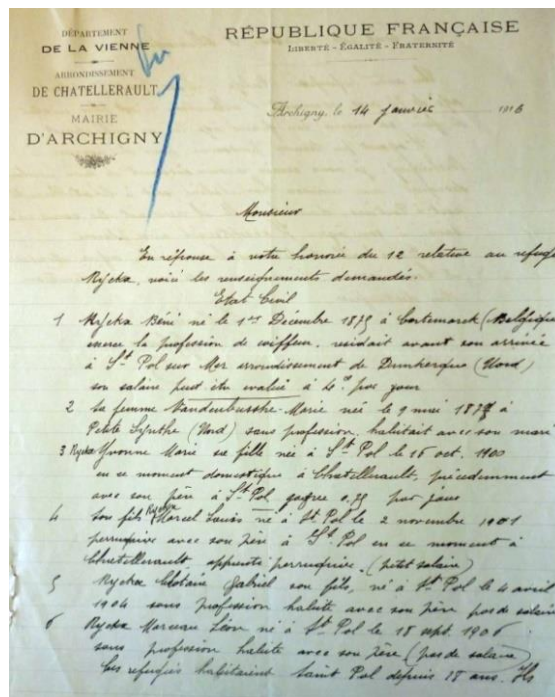 DÉPARTEMENT
DE LA VIENNE
ARRONDISSEMENT
DE CHATELLERAULT
MAIRIE
D'ARCHIGNY
RÉPUBLIQUE FRANÇAISE
LIBERTÉ - ÉGALITÉ - FRATERNITÉ
Archigny, le 14 Janvier 1916
Monsieur
En réponse à votre honorée du 12 relative au réfugié
Ryckx, voici les renseignements demandés.
Etat Civil
1 Ryckx Béni né le 1er Décembre 1875 à Cortemarck (Belgique
exerce la profession de coiffeur, résidait avant son arrivée
à St Pol sur Mer arrondissement de Dunkerque (Nord)
son salaire peut être évalué à par jour
2 Sa femme Vandenbussche Marie née le 9 mai 187 à
Petite Synthe (Nord) sans profession, habitait avec son mari
3 Ryckx Yvonne Marie sa fille née à St Pol le 15 oct. 1900
en ce moment domestique à Chatellerault, précédemment
avec son père à St Pol gagnee 0,75 par jour
4 Son fils Ryckx Marcel Louis né à St Pol le 2 novembre 1901
perruquier avec son père à St Pol en ce moment à
Chatellerault apprenti perruquier. (petit salaire)
5 Ryckx Clotaire Gabriel son fils, né à St Pol le 4 avril
1904 sans profession habite avec son père pas de salaire
6 Ryckx Marceau Léon né à St Pol le 18 sept. 1906
sans profession habite avec son père (pas de salaire)
Ces réfugiés habitaient Saint Pol depuis 18 ans. Ils